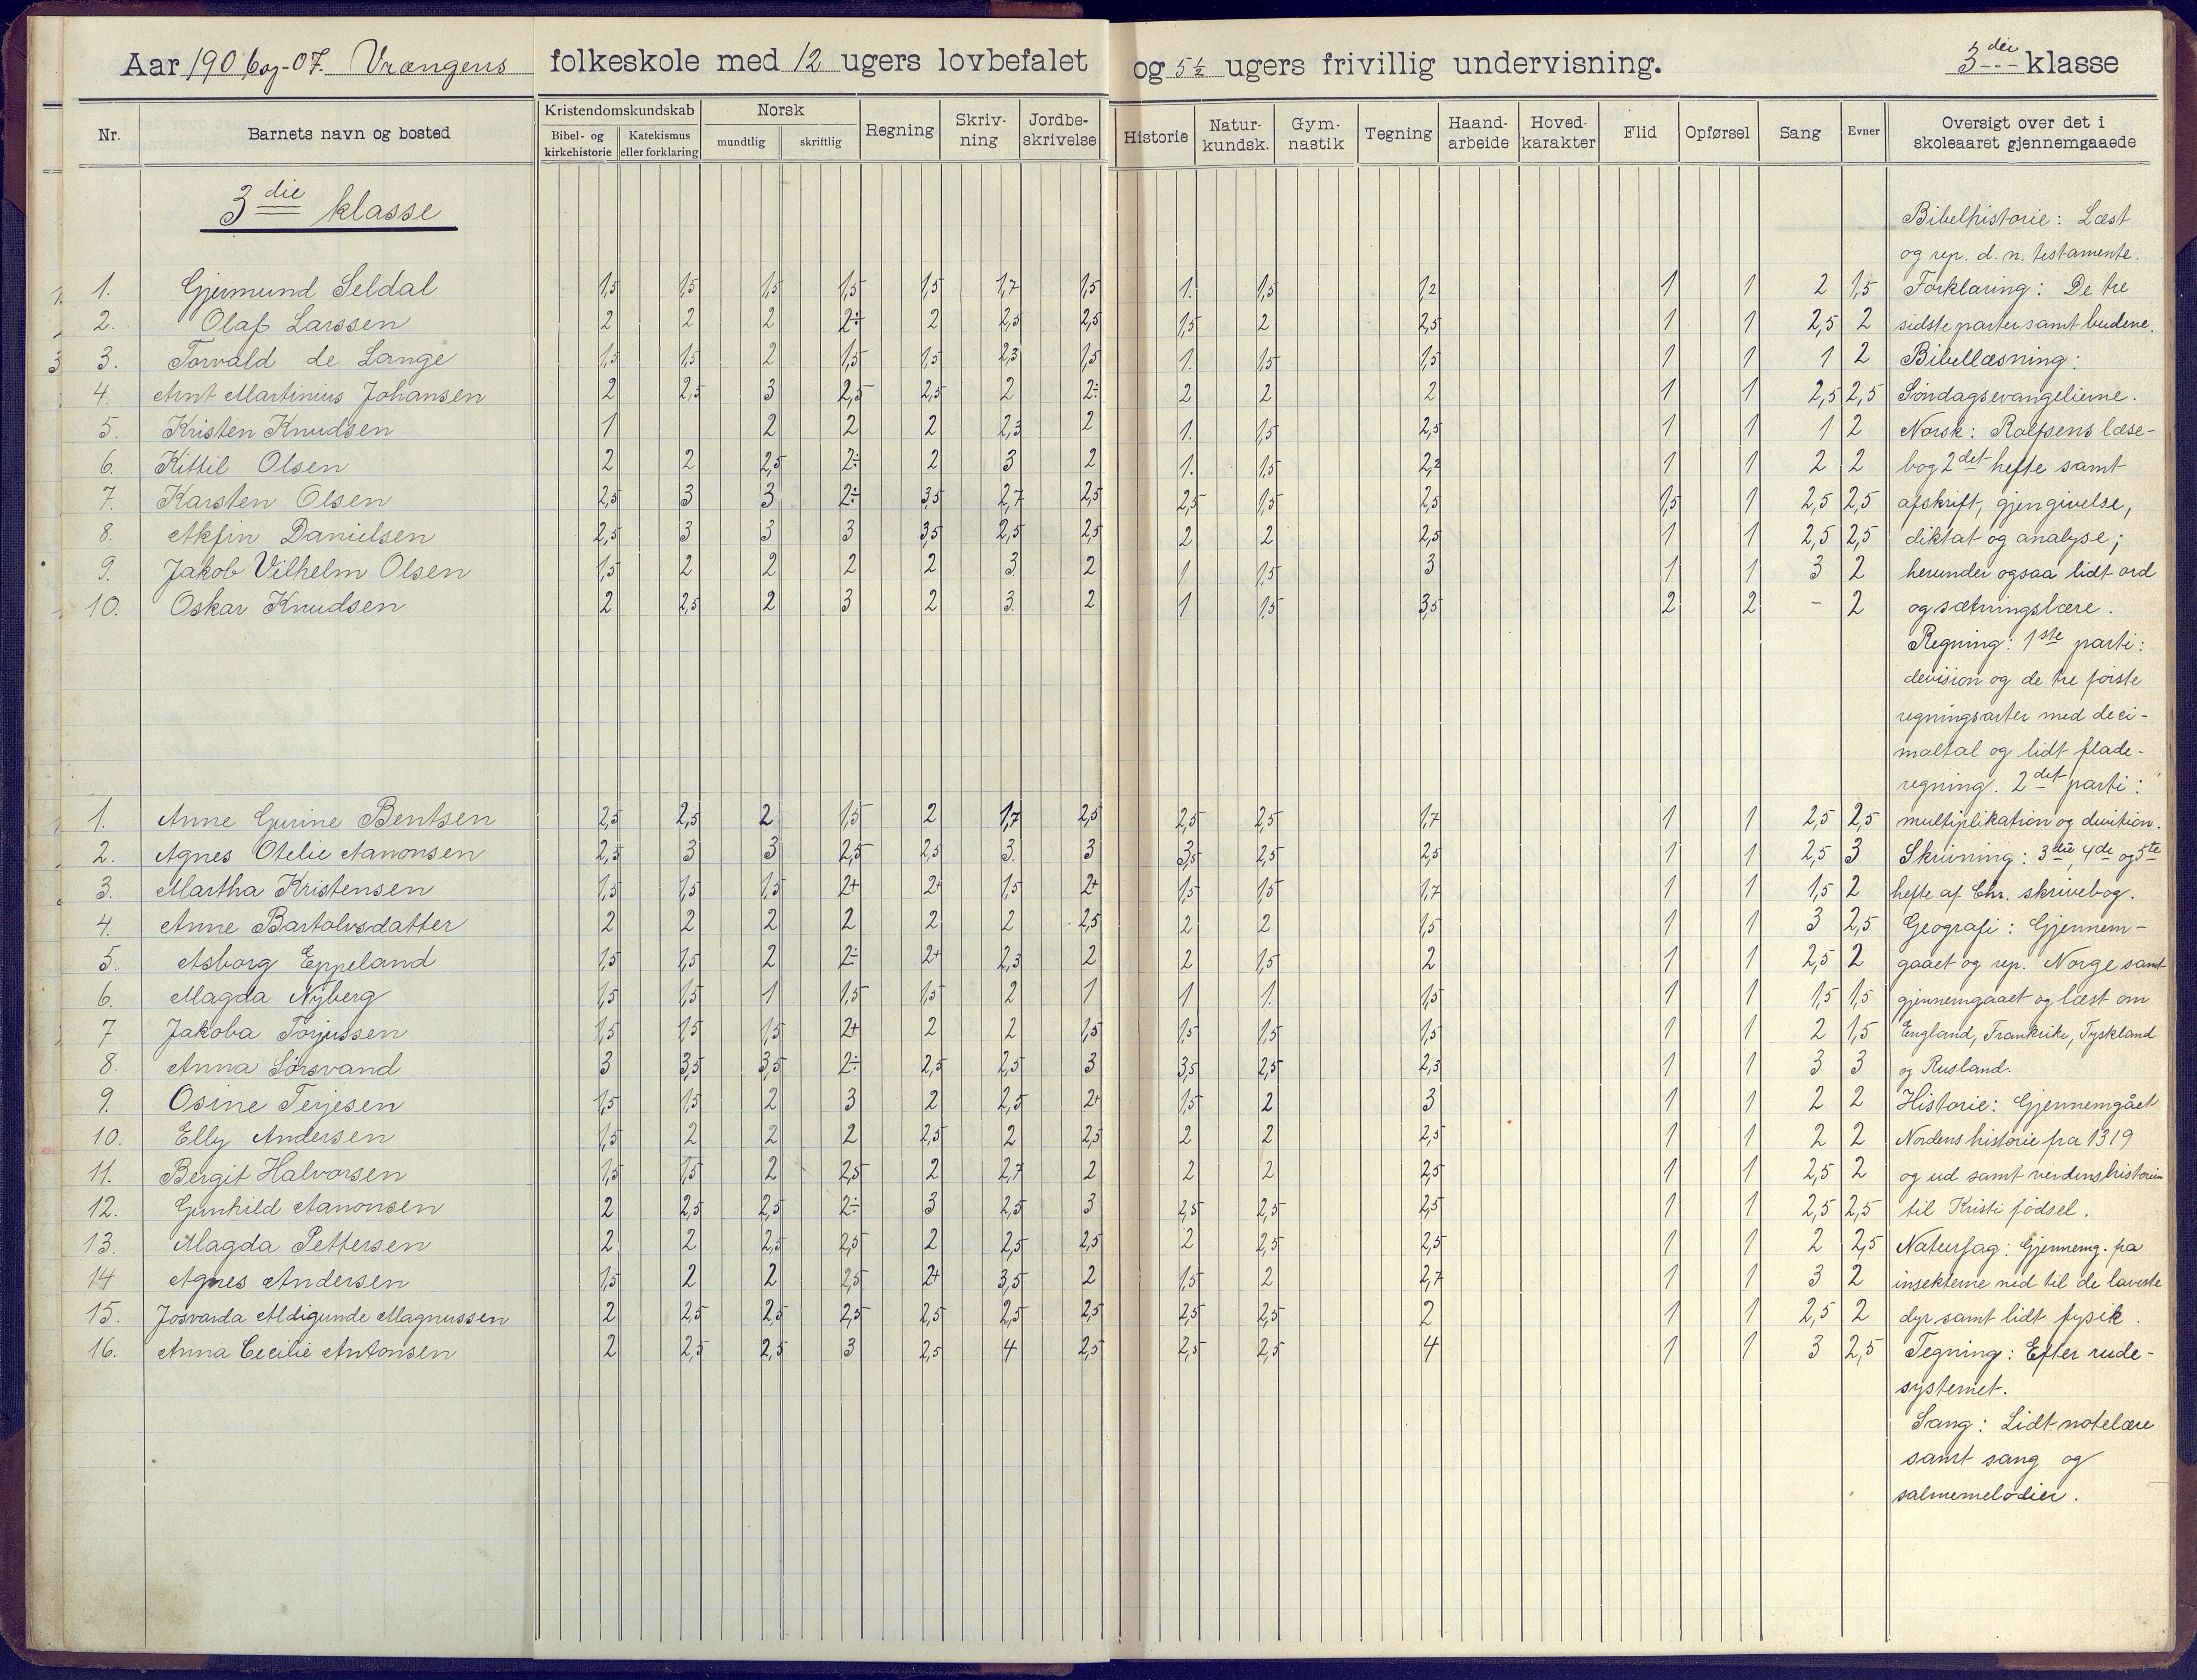 Aar 1906 og -07. Vrængens folkeskole med 12 ugers lovbefalet og 5 1/2 ugers frivillig undervisning. 3die klasse
Nr. Barnets navn og bosted Kristendomskundskab Bibel- og kirkehistorie Katekismus eller forklaring Norsk mundtlig skriftlig Regning Skrivning Jordbeskrivelse Historie Naturkundsk. Gymnastik Tegning Haandarbeide Hovedkarakter Flid Opførsel Sang Evner Oversigt over det i skoleaaret gjennemgaaede
3die klasse
1. Gjermund Seldal 1,5 1,5 1,5 1,5 1,5 1,7 1,5 1. 1,5 1,2 1 1 2 1,5
2. Olaf Larssen 2 2 2 2÷ 2 2,5 2,5 1,5 2 2,5 1 1 2,5 2
3. Torvald de Lange 1,5 1,5 2 1,5 1,5 2,3 1,5 1. 1,5 1,5 1 1 1 2
4. Arnt Martinius Johansen 2 2,5 3 2,5 2,5 2 2÷ 2 2 2 1 1 2,5 2,5
5. Kristen Knudsen 1 2 2 2 2,3 2 1. 1,5 2,5 1 1 1 2
6. Kittil Olsen 2 2 2,5 2÷ 2 3 2 1. 1,5 2,2 1 1 2 2
7. Karsten Olsen 2,5 3 3 2÷ 3,5 2,7 2,5 2,5 1,5 2,5 1,5 1 2,5 2,5
8. Akfin Danielsen 2,5 3 3 3 3,5 2,5 2,5 2 2 2,5 1 1 2,5 2,5
9. Jakob Vilhelm Olsen 1,5 2 2 2 2 3. 2 1 1,5 3 1 1 3 2
10. Oskar Knudsen 2 2,5 2 3 2 3. 2 1 1,5 3,5 2 2 - 2
1. Anne Gurine Bentsen 2,5 2,5 2 1,5 2 1,7 2,5 2,5 2,5 1,7 1 1 2,5 2,5
2. Agnes Otelie Aanonsen 2,5 3 3 2,5 2,5 3. 3 3,5 2,5 2,5 1 1 2,5 3
3. Martha Kristensen 1,5 1,5 1,5 2+ 2+ 1,5 2+ 1,5 1,5 1,7 1 1 1,5 2
4. Anne Bartolvsdatter 2 2 2 2 2 2 2,5 2 2 1,5 1 1 3 2,5
5. Asborg Eppeland 1,5 1,5 2 2÷ 2+ 2,3 2 2 1,5 2 1 1 2,5 2
6. Magda Nyberg 1,5 1,5 1 1,5 1,5 2 1 1 1. 1,5 1 1 1,5 1,5
7 Jakoba Torjussen 1,5 1,5 1,5 2+ 2 2 1,5 1,5 1,5 1,5 1 1 2 1,5
8. Anna Sørsvand 3 3,5 3,5 2÷ 2,5 2,5 3 3,5 2,5 2,3 1 1 3 3
9. Osine Terjesen 1,5 1,5 2 3 2 2,5 2+ 1,5 2 3 1 1 2 2
10. Elly Andersen 1,5 2 2 2 2,5 2 2,5 2 2 2,5 1 1 2 2
11. Bergit Halvorsen 1,5 1,5 2 2,5 2 2,7 2 2 2 2,5 1 1 2,5 2
12. Gunhild Aanonsen 2 2,5 2,5 2÷ 3 2,5 3 2,5 2,5 2,5 1 1 2,5 2,5
13. Magda Pettersen 2 2 2,5 2,5 2 2,5 2,5 2 2,5 2,5 1 1 2 2,5
14 Agnes Andersen 1,5 2 2 2,5 2+ 3,5 2 1,5 2 2,7 1 1 3 2
15. Josvarda Aldigunde Magnussen 2 2,5 2,5 2,5 2,5 2,5 2,5 2,5 2,5 2 1 1 2,5 2
16. Anna Cecilie Antonsen 2 2,5 2,5 3 2,5 4 2,5 2,5 2,5 4 1 1 3 2,5
Bibelhistorie: Læst
og rep. d. n. testamente.
Forklaring: De tre
sidste parter samt budene.
Bibellæsning:
Søndagsevangelierne.
Norsk: Rolfsens læse-
bog 2det hefte samt
afskrift, gjengivelse,
diktat og analyse;
herunder ogsaa lidt ord
og sætningslære.
Regning: 1ste parti:
devision og de tre første
regningsarter med deci-
maltal og lidt flade-
regning. 2det parti:
multiplikation og devition.
Skrivning: 3die, 4de og 5te
hefte af Chr. skrivebog.
Geografi: Gjennem-
gaaet og rep. Norge samt
gjennemgaaet og læst om
England, Frankrike, Tyskland
og Rusland.
Historie: Gjennemgået
Nordens historie fra 1319
og ud samt verdenshistorien
til Kristi fødsel.
Naturfag: Gjennemg. fra
insekterne ned til de laveste
dyr samt lidt fysik.
Tegning: Efter rude-
systemet.
Sang: Lidt notelære
samt sang og
salmemelodier.